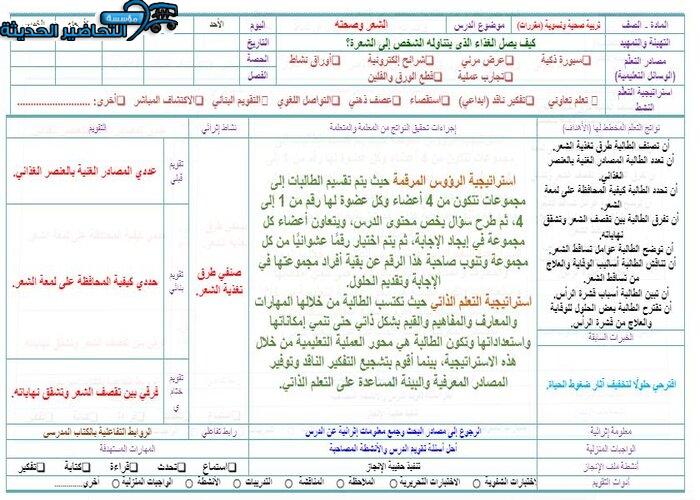 مؤسسة
التحاضير الحديثة
المادة - الصف
تربية صحية ونسوية (مقررات)
موضوع الدرس
الشعر وصحته
اليوم
الأحد
التهيئة والتمهيد
كيف يصل الغذاء الذى يتناوله الشخص إلى الشعرة؟
التاريخ
مصادر التعلم
(الوسائل التعليمية)
سبورة ذكية
عرض مرئي
شرائح إلكترونية
أوراق نشاط
تجارب عملية
قطع الورق والفلين
الحصة
الفصل
استراتيجية التعلم
النشط
تعلم تعاوني
تفكير ناقد (ابداعي)
استقصاء
عصف ذهني
التواصل اللغوي
التقويم البنائي
الاكتشاف المباشر
أخرى: ....................
نواتج التعلم المخطط لها (الأهداف)
إجراءات تحقيق النواتج من المعلمة والمتعلمة
نشاط إثرائي
التقويم
أن تصنف الطالبة طرق تغذية الشعر.
أن تعدد الطالبة المصادر الغنية بالعنصر
الغذائي.
أن تحدد الطالبة كيفية المحافظة على لمعة
الشعر.
أن تفرق الطالبة بين تقصف الشعر وتشقق
نهاياته.
أن توضح الطالبة عوامل تساقط الشعر.
أن تناقش الطالبة أساليب الوقاية والعلاج
من تساقط الشعر.
أن تبين الطالبة أسباب قشرة الرأس.
أن تقترح الطالبة بعض الحلول للوقاية
والعلاج من قشرة الرأس.
الخبرات السابقة
اقترحي حلولًا لتخفيف آثار ضغوط الحياة.
استراتيجية الرؤوس المرقمة حيث يتم تقسيم الطالبات إلى
مجموعات تتكون من 4 أعضاء وكل عضوة لها رقم من 1 إلى
4، ثم طرح سؤال يخص محتوى الدرس، ويتعاون أعضاء كل
مجموعة في إيجاد الإجابة، ثم يتم اختيار رقمًا عشوائيًا من كل
مجموعة وتنوب صاحبة هذا الرقم عن بقية أفراد مجموعتها في
الإجابة وتقديم الحلول.
استراتيجية التعلم الذاتي حيث تكتسب الطالبة من خلالها المهارات
والمعارف والمفاهيم والقيم بشكل ذاتي حتى تنمي إمكاناتها
واستعداداتها وتكون الطالبة هي محور العملية التعليمية من خلال
هذه الاستراتيجية، بينما أقوم بتشجيع التفكير الناقد وتوفير
المصادر المعرفية والبيئة المساعدة على التعلم الذاتي.
صنفي طرق
تغذية الشعر.
تقويم
قبلي
عددي المصادر الغنية بالعنصر الغذائي.
تقويم
بنائي
حددي كيفية المحافظة على لمعة الشعر.
تقويم
ختام
ي
فرقي بين تقصف الشعر وتشقق نهاياته.
معلومة إثرائية
الرجوع إلى مصادر البحث وجمع معلومات إثرائية عن الدرس
رابط تفاعلي
الروابط التفاعلية بالكتاب المدرسي
الواجبات المنزلية
أحل أسئلة تقويم الدرس والأنشطة المصاحبة
المهارات المستهدفة
أنشطة ملف الإنجاز
تنفيذ حقيبة الإنجاز
استماع
تحدث
قراءة
كتابة
تفكير
أدوات التقويم
الاختبارات الشفوية
الاختبارات التحريرية
الملاحظة
المناقشة
التدريبات
الأنشطة
الواجبات المنزلية
أخرى..............